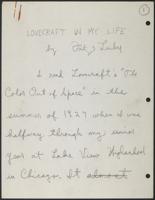 1
LOVECRAFT IN MY LIFE
by Fritz Leiber
I read Lovecraft's "The
Color Out of Space" in the
summer of 1927 when I was
halfway through my senior
year at Lake View Highschool
in Chicago. It almost